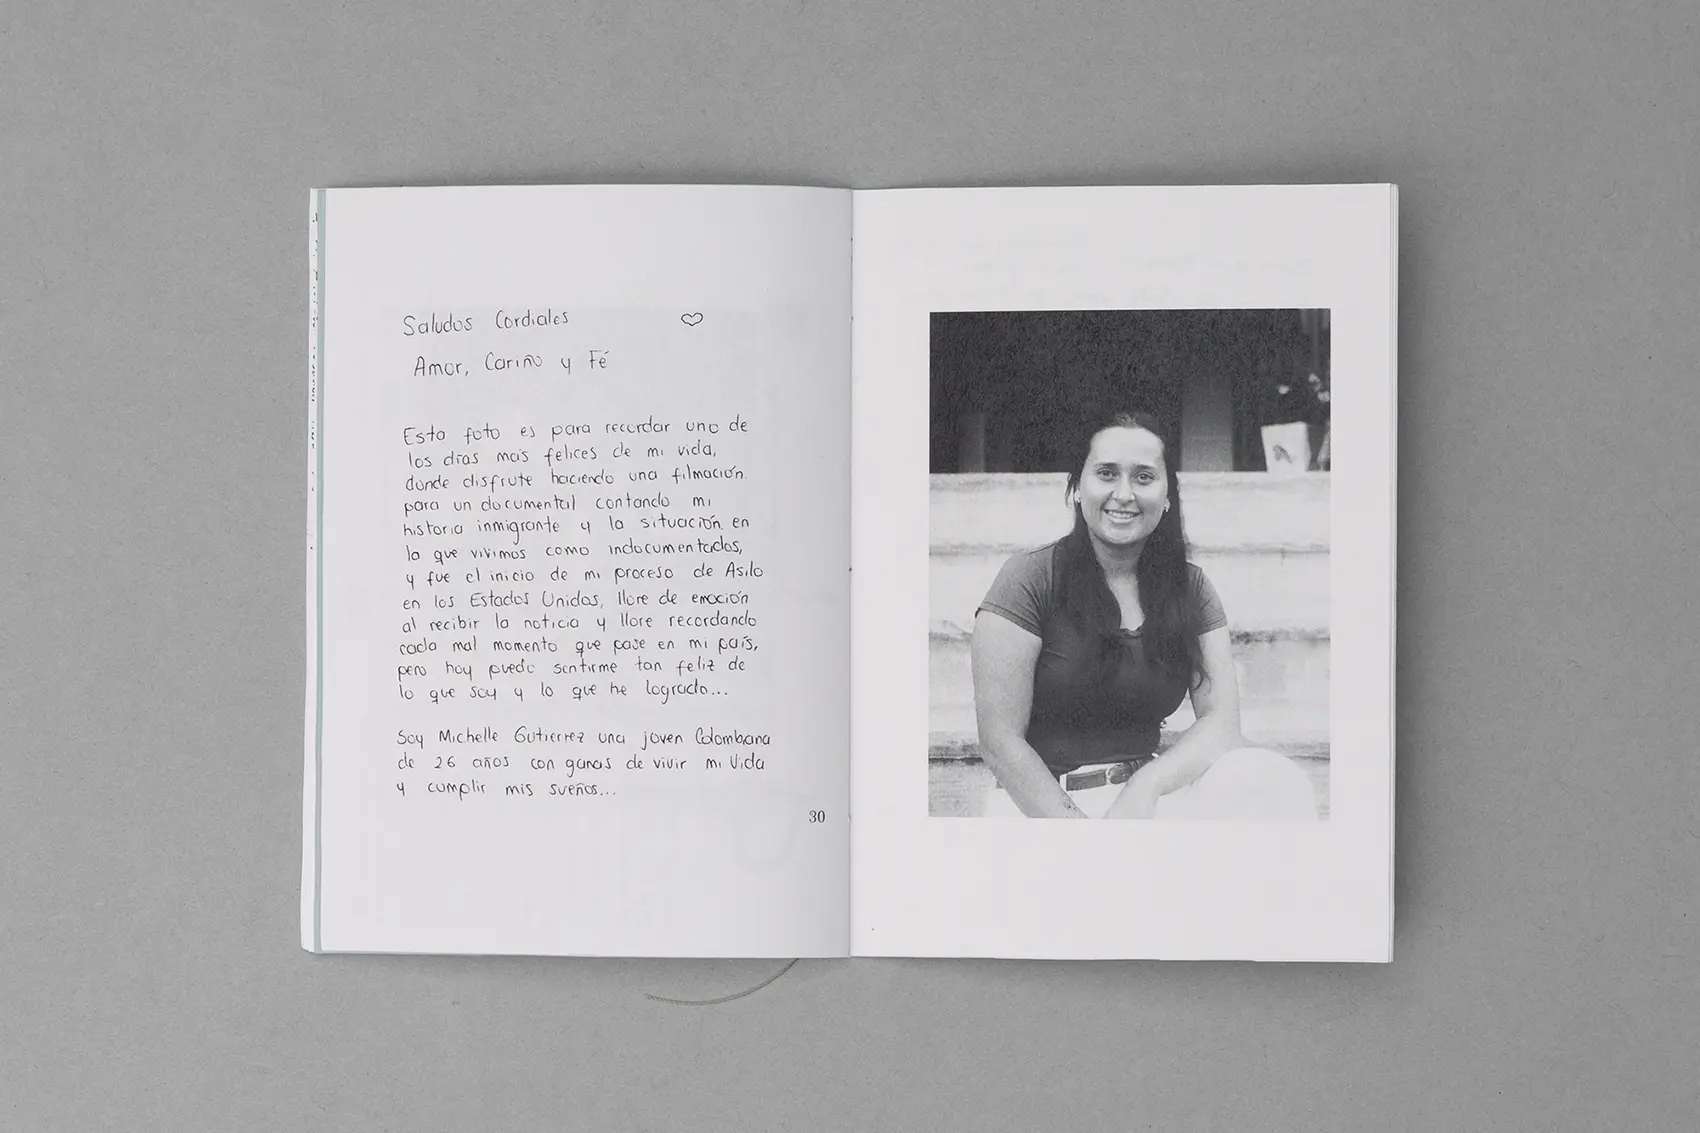 Saludos Cordiales
Amor, Cariño y Fé
Esta foto es para recordar uno de
los días mas felices de mi vida,
donde disfrute haciendo una filmación
para un documental contando mi
historia inmigrante y la situación en
la que vivimos como indocumentados,
y fue el inicio de mi proceso de Asilo
en los Estados Unidos, llore de emoción
al recibir la noticia y llore recordando
cada mal momento que pase en mi país,
pero hoy puedo sentirme tan feliz de
lo que soy y lo que he logrado...
Soy Michelle Gutierrez una joven Colombiana
de 26 años con ganas de vivir mi vida
y cumplir mis sueños...
30